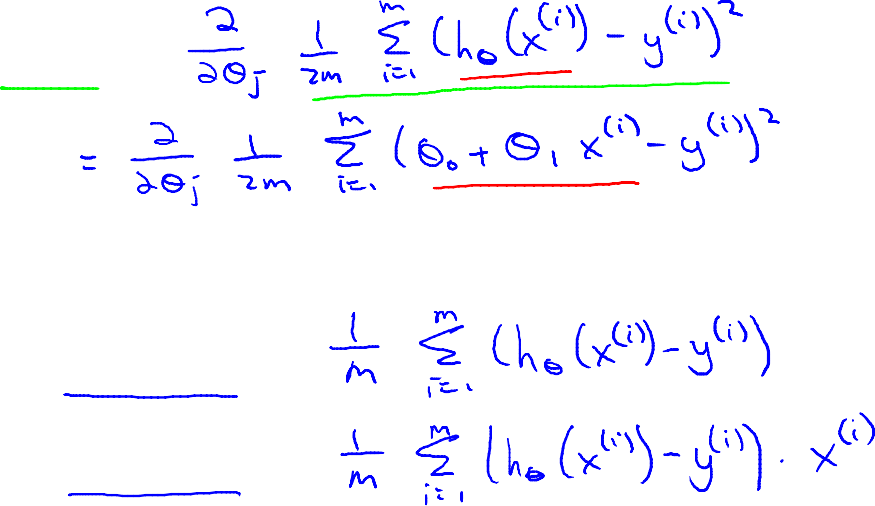 ∂/∂θ_j 1/2m Σ_{i=1}^{m} (h_θ(x^{(i)}) - y^{(i)})^2
= ∂/∂θ_j 1/2m Σ_{i=1}^{m} (θ_0 + θ_1 x^{(i)} - y^{(i)})^2
1/m Σ_{i=1}^{m} (h_θ(x^{(i)}) - y^{(i)})
1/m Σ_{i=1}^{m} (h_θ(x^{(i)}) - y^{(i)}) · x^{(i)}